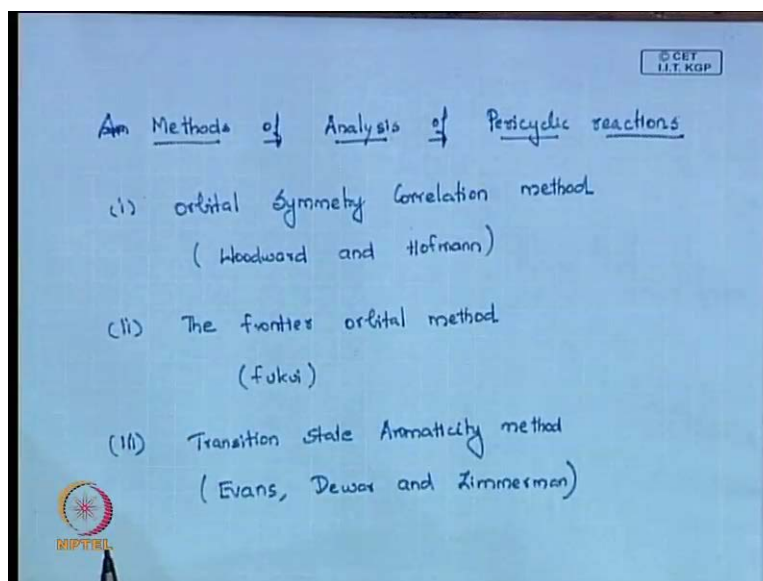 © CET
I.I.T. KGP
Methods of Analysis of Pericyclic reactions
(i) orbital Symmetry Correlation method
(Woodward and Hofmann)
(ii) The frontier orbital method
(fukui)
(iii) Transition State Aromaticity method
(Evans, Dewar and Zimmerman)
NPTEL